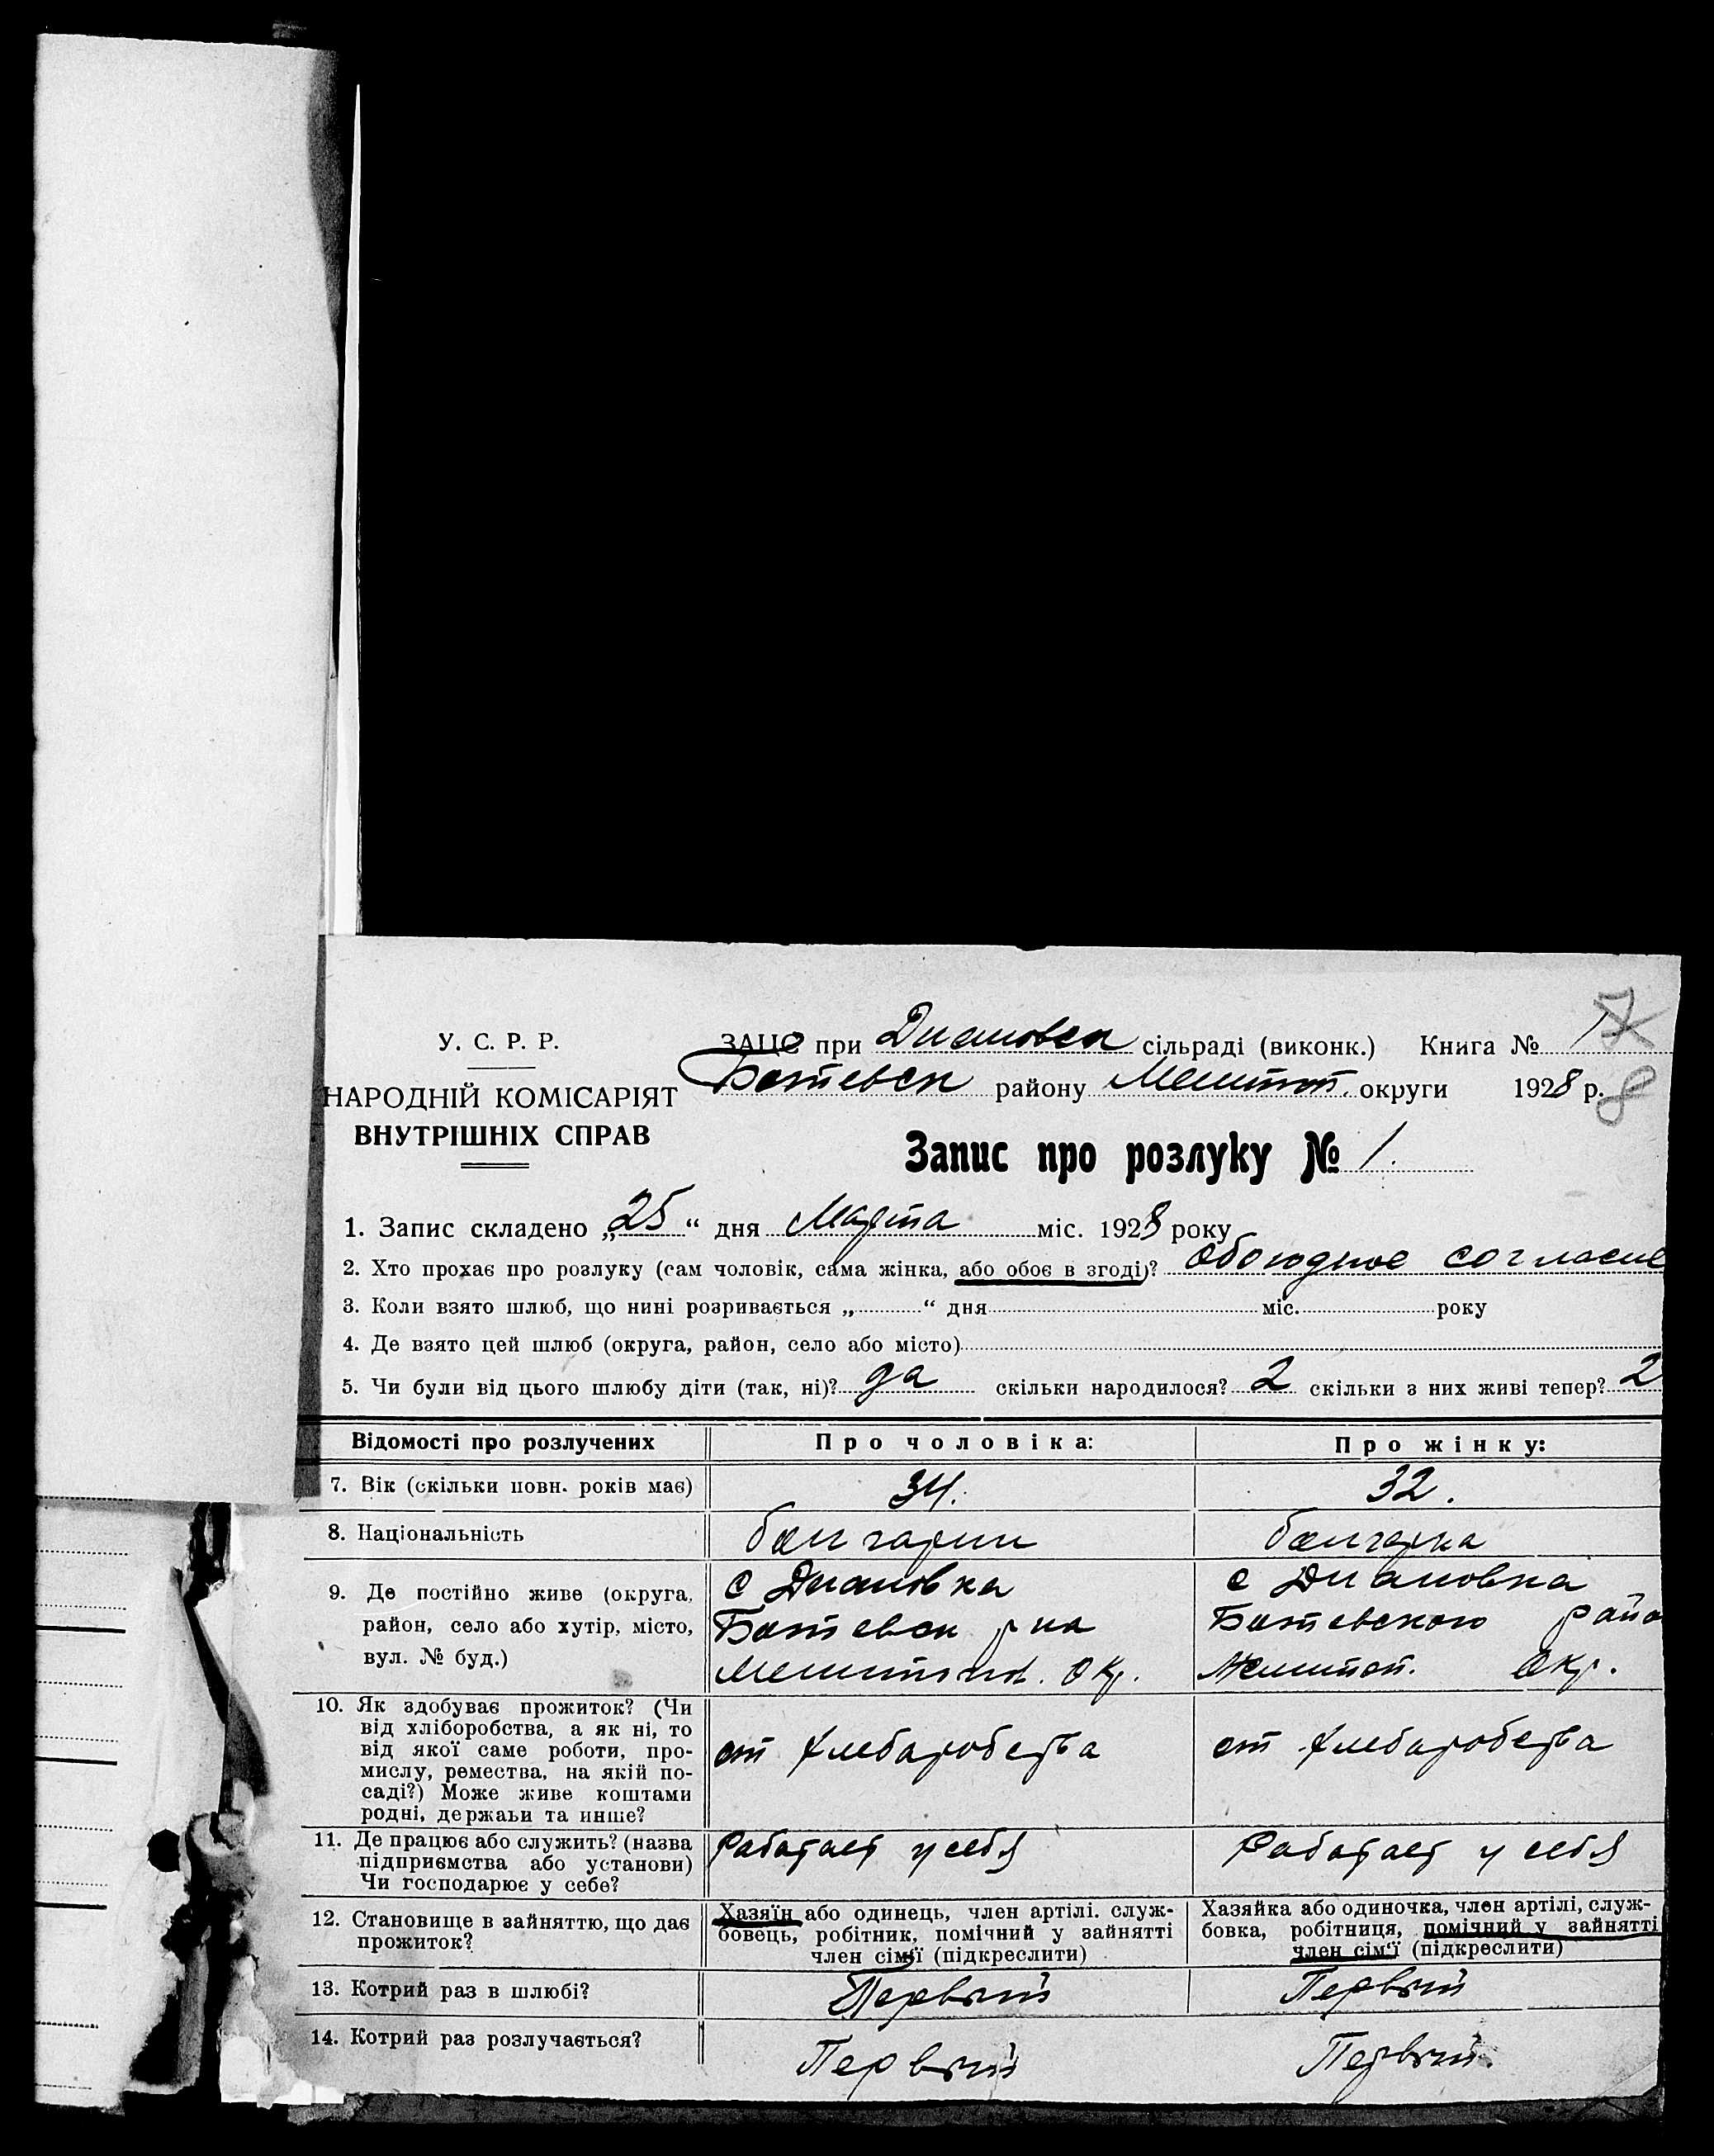 У. С. Р. Р.
НАРОДНІЙ КОМІСАРІЯТ
ВНУТРІШНІХ СПРАВ
ЗАЦС при Диановск сільраді (виконк.) Книга №
Ботевск району Мелитоп. округи 1928 р.
8
Запис про розлуку № 1.
1. Запис складено „25“ дня Марта міс. 1928 року
2. Хто прохає про розлуку (сам чоловік, сама жінка, або обоє в згоді)? Обоюдное согласие
3. Коли взято шлюб, що нині розривається „ “ дня міс. року
4. Де взято цей шлюб (округа, район, село або місто)
5. Чи були від цього шлюбу діти (так, ні)? да скільки народилося? 2 скільки з них живі тепер? 2
Відомості про розлучених Про чоловіка: Про жінку:
7. Вік (скільки повн. років має) 34. 32.
8. Національність болгарин болгарка
9. Де постійно живе (округа, район, село або хутір, місто, вул. № буд.)
с Диановка
Ботевск рна
Мелитопол. Окр.
с Диановка
Ботевского райо
Мелитоп. Окр.
10. Як здобуває прожиток? (Чи
від хліборобства, а як ні, то
від якої саме роботи, про-
мислу, ремества, на якій по-
саді?) Може живе коштами
родні, держави та инше?
от хлебаробства
от хлебаробства
11. Де працює або служить? (назва
підприємства або установи)
Чи господарює у себе?
Работает у себя
Работает у себя
12. Становище в зайняттю, що дає
прожиток?
Хазяїн або одинець, член артілі. служ-
бовець, робітник, помічний у зайнятті
член сім'ї (підкреслити)
Хазяйка або одиночка, член артілі, служ-
бовка, робітниця, помічний у зайнятті
член сім'ї (підкреслити)
13. Котрий раз в шлюбі? Первый Первый
14. Котрий раз розлучається? Первый Первый.